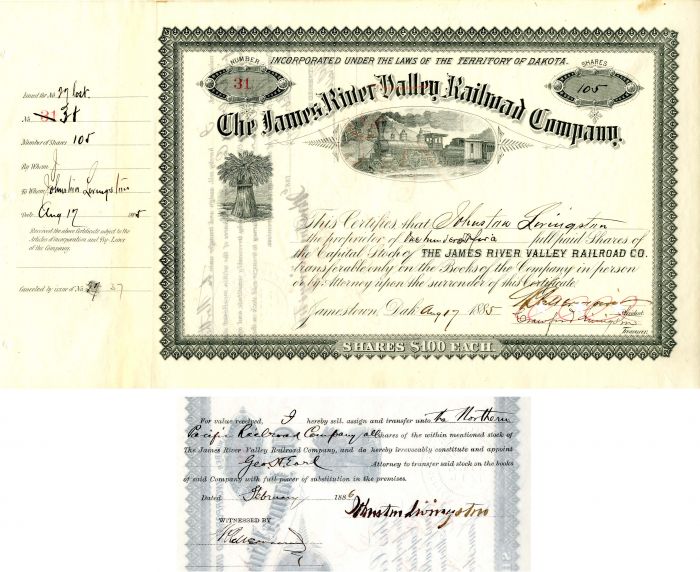 Issued for No. 27 Cert.
No. 31 31
Number of Shares 105
By Whom
To Whom Johnston Livingston
Date Aug 17 1885
Received the above Certificate subject to the
Articles of Incorporation and By-Laws
of the Company.
Canceled by issue of No. 37
INCORPORATED UNDER THE LAWS OF THE TERRITORY OF DAKOTA.
NUMBER
31
SHARES
105
The James River Valley Railroad Company,
This Certifies that Johnston Livingston
the proprietor of One hundred & five full paid Shares of
the Capital Stock of THE JAMES RIVER VALLEY RAILROAD CO.
transferable only on the Books of the Company in person
or by Attorney upon the surrender of this Certificate.
Jamestown, Dak. Aug 17 1885
President.
Crawford Livingston
Treasurer.
SHARES $100 EACH.
For value received, I hereby sell, assign and transfer unto the Northern
Pacific Railroad Company all shares of the within mentioned stock of
The James River Valley Railroad Company, and do hereby irrevocably constitute and appoint
Geo. H. Earl Attorney to transfer said stock on the books
of said Company with full power of substitution in the premises.
Dated February 1886
Johnston Livingston
WITNESSED BY